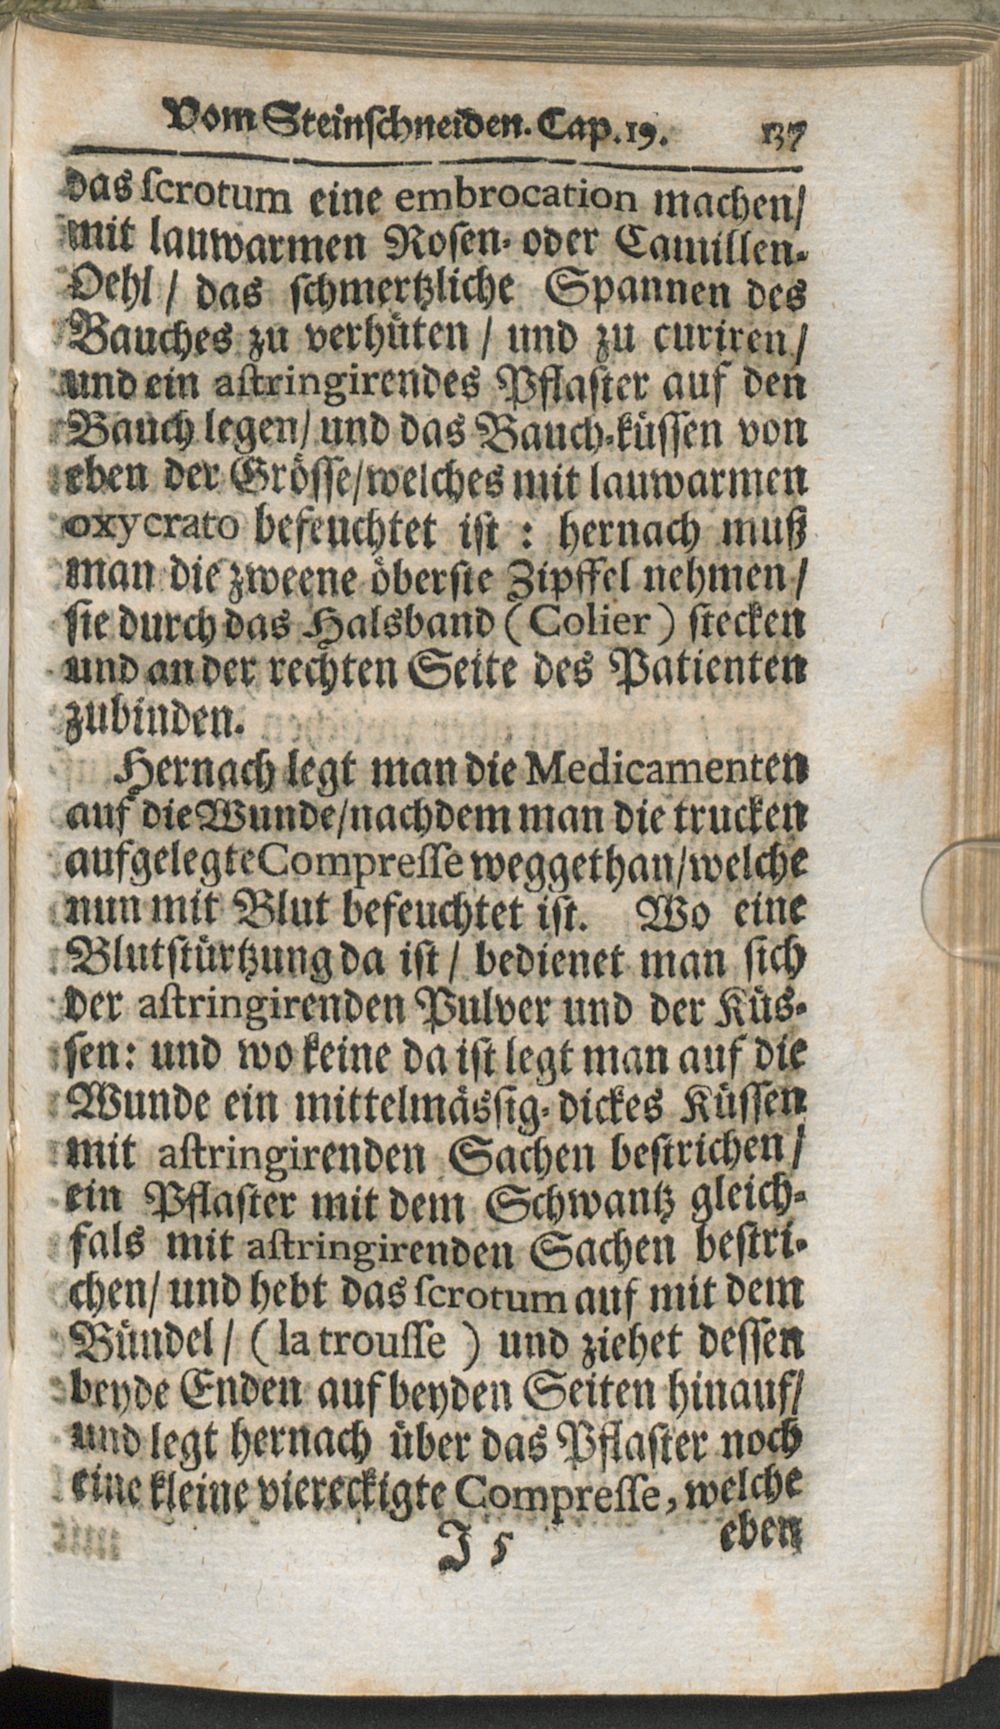 Vom Steinschneiden. Cap. 19. 137
das scrotum eine embrocation machen/
mit lauwarmen Rosen- oder Camillen-
Oehl / das schmertzliche Spannen des
Bauches zu verhüten / und zu curiren /
und ein astringirendes Pflaster auf den
Bauch legen/ und das Bauch-küssen von
eben der Grösse/welches mit lauwarmen
oxycrato befeuchtet ist : hernach muß
man die zweene öberste Zipffel nehmen /
sie durch das Halsband ( Colier ) stecken
und an der rechten Seite des Patienten
zubinden.
Hernach legt man die Medicamenten
auf die Wunde/nachdem man die trucken
aufgelegte Compresse weggethan/welche
nun mit Blut befeuchtet ist. Wo eine
Blutstürtzung da ist / bedienet man sich
der astringirenden Pulver und der Küs-
sen: und wo keine da ist legt man auf die
Wunde ein mittelmässig-dickes Küssen
mit astringirenden Sachen bestrichen /
ein Pflaster mit dem Schwantz gleich-
fals mit astringirenden Sachen bestri-
chen/ und hebt das scrotum auf mit dem
Bündel / ( la trousse ) und ziehet dessen
beyde Enden auf beyden Seiten hinauf/
und legt hernach über das Pflaster noch
eine kleine viereckigte Compresse, welche
J 5 eben